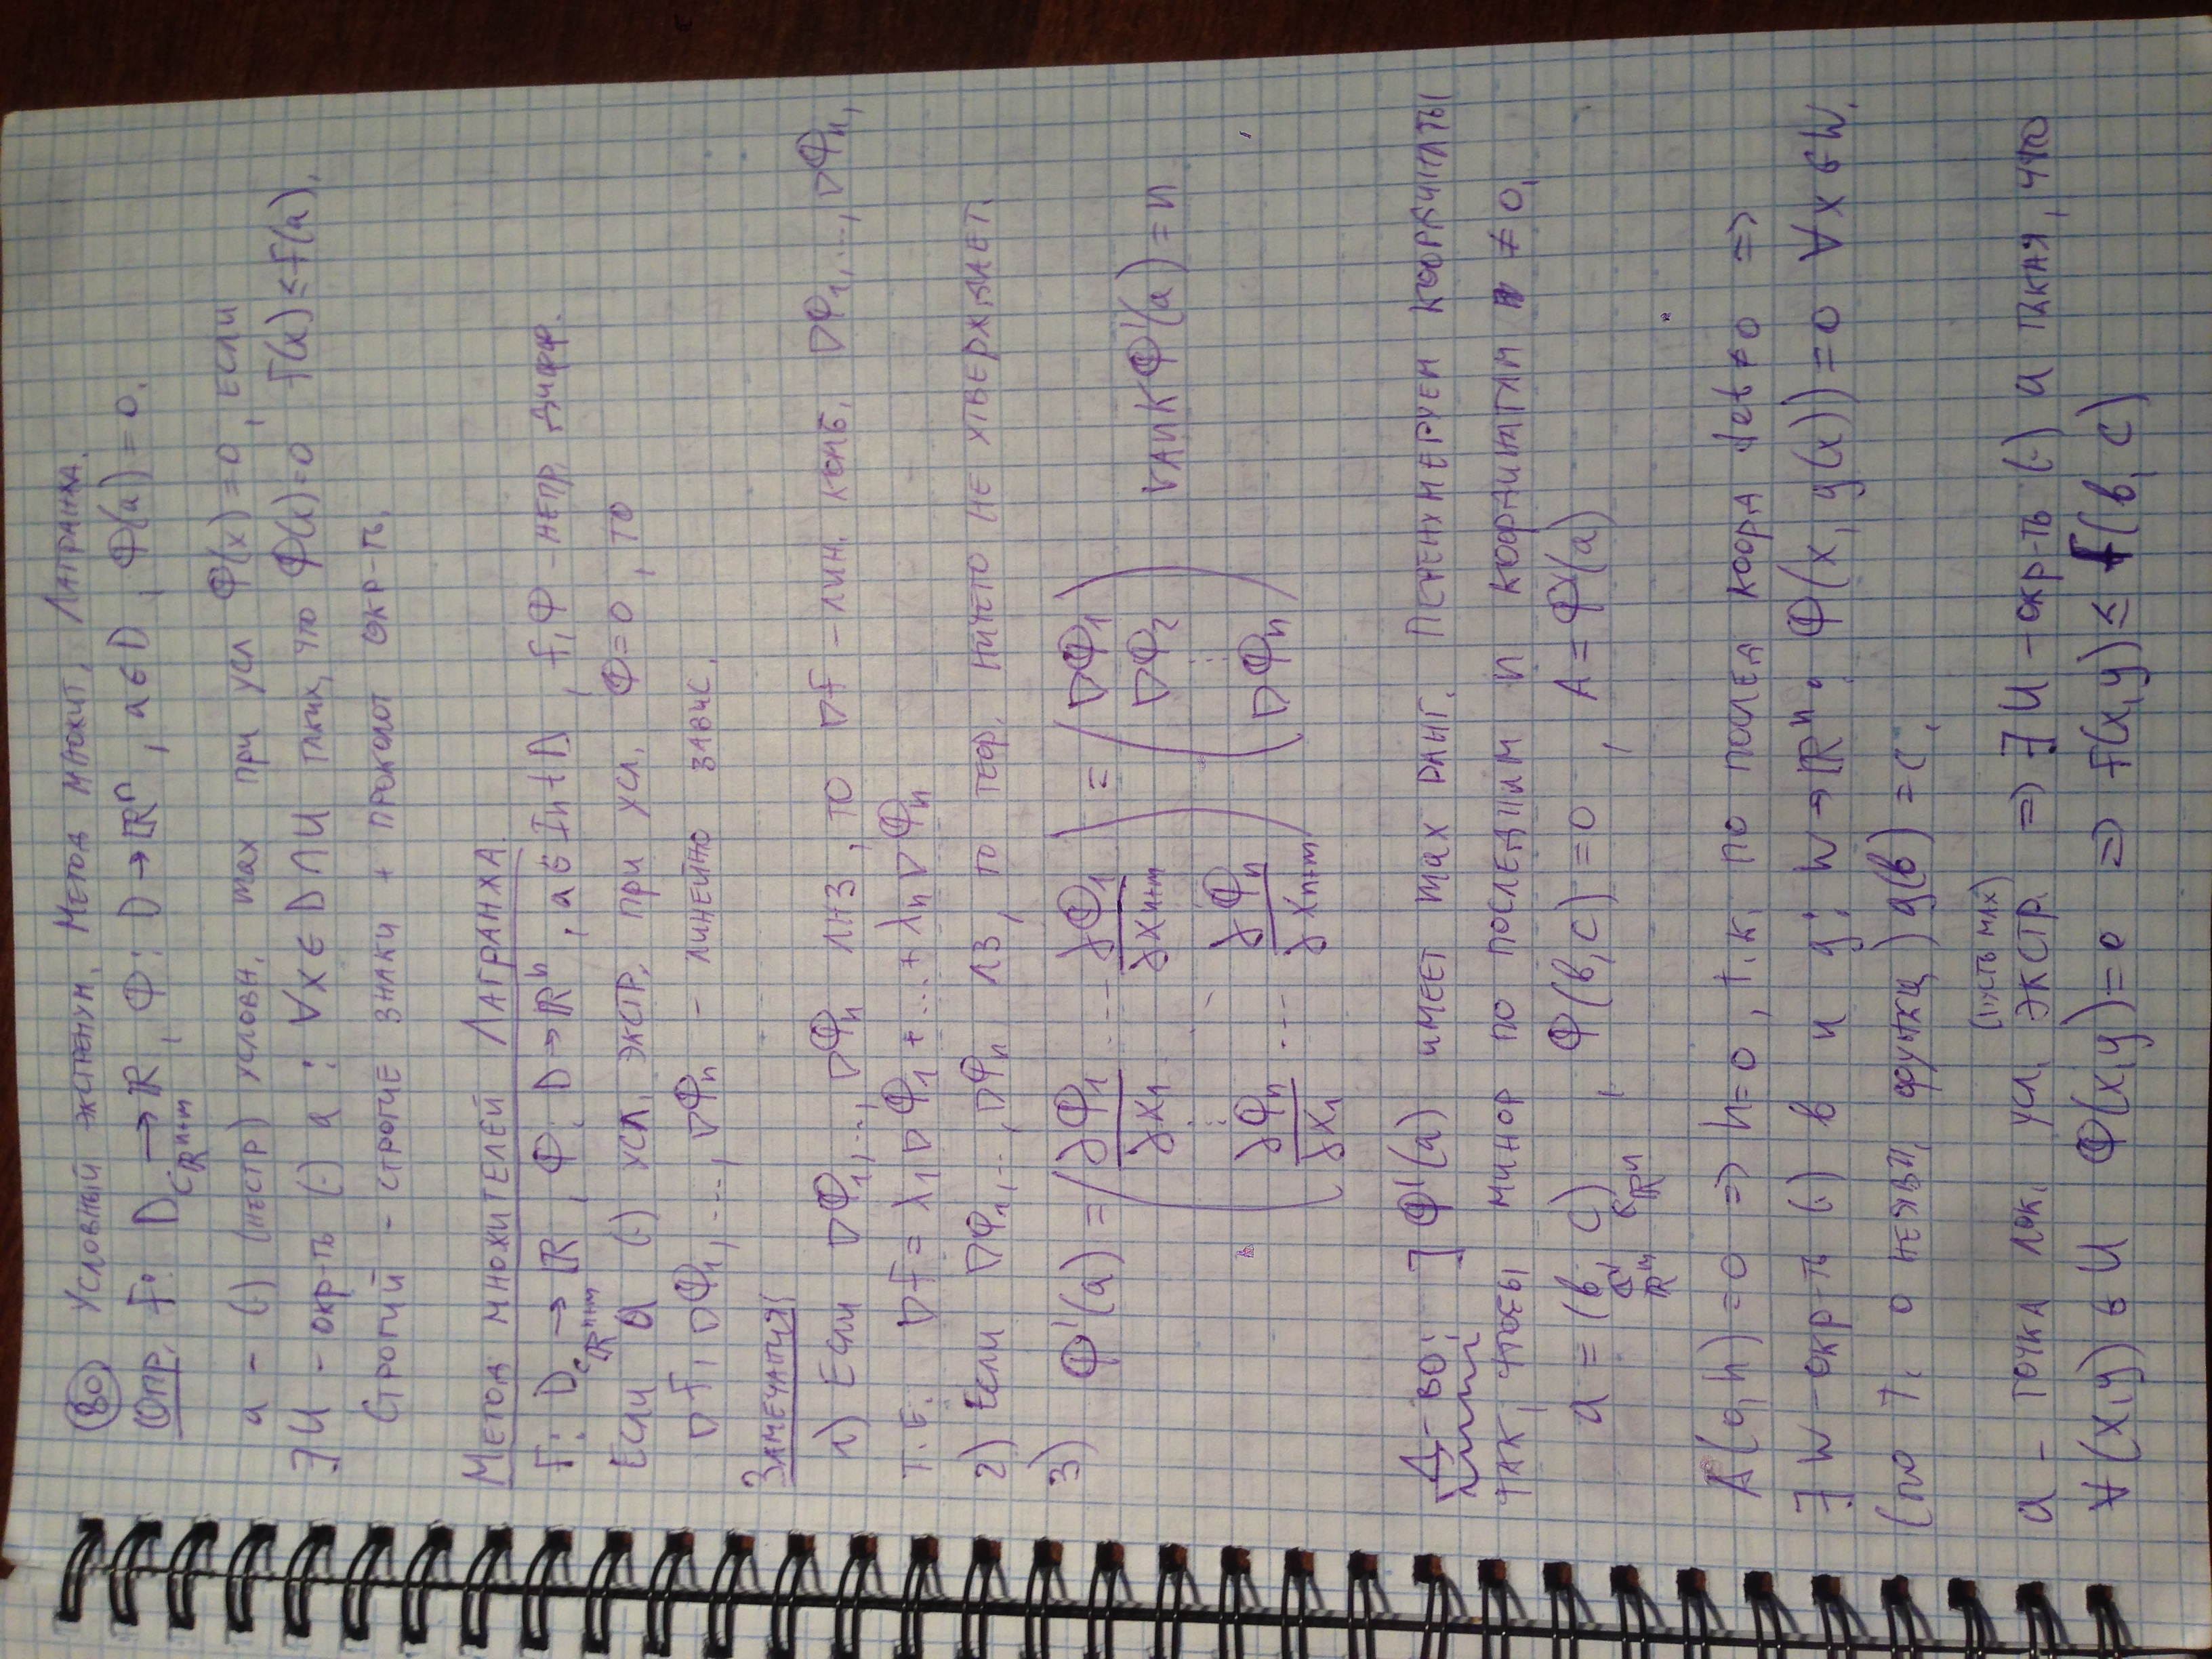 80 Условный экстремум. Метод множит. Лагранжа.
Опр. f: D ⊂ ℝⁿ⁺ᵐ → ℝ, Φ: D → ℝⁿ, a ∈ D, Φ(a) = 0.
a – (·) (нестр) условн. max при усл Φ(x) = 0, если
∃ U – окр-ть (·) a : ∀x ∈ D ∩ U таких, что Φ(x)=0 f(x) ≤ f(a).
Строгий – строгие знаки + проколот окр-ть.
Метод множителей Лагранжа.
f: D ⊂ ℝⁿ⁺ᵐ → ℝ, Φ: D → ℝⁿ, a ∈ Int D, f, Φ – непр. дифф.
Если a (·) усл. экстр. при усл. Φ=0, то
∇f, ∇Φ₁, ..., ∇Φₙ – линейно завис.
Замечания:
1) Если ∇Φ₁, ..., ∇Φₙ ЛНЗ, то ∇f – лин. комб. ∇Φ₁, ..., ∇Φₙ,
т.е. ∇f = λ₁∇Φ₁ + ... + λₙ∇Φₙ
2) Если ∇Φ₁, ..., ∇Φₙ ЛЗ, то теор. ничего не утверждает.
3) Φ'(a) = (∂Φ₁/∂x₁ ... ∂Φ₁/∂xₙ₊ₘ ⋮ ⋱ ⋮ ∂Φₙ/∂x₁ ... ∂Φₙ/∂xₙ₊ₘ) = (∇Φ₁ ∇Φ₂ ⋮ ∇Φₙ) rank Φ'(a) = n
Д-во: ] Φ'(a) имеет max ранг. Перенумеруем координаты
так, чтобы минор по последним n координатам ≠ 0.
a = (b, c) ∈ℝᵐ ∈ℝⁿ, Φ(b,c) = 0, A = Φ'(a)
A(0,h) = 0 => h=0, т.к. по послед коорд det ≠ 0 =>
∃ W – окр-ть (·) b и g: W → ℝⁿ: Φ(x, g(x)) = 0 ∀x ∈ W.
(по т. о неявн. функц) g(b) = c.
(пусть max)
a – точка лок. усл. экстр. => ∃ U – окр-ть (·) a такая, что
∀(x,y) ∈ U Φ(x,y)=0 => f(x,y) ≤ f(b,c)